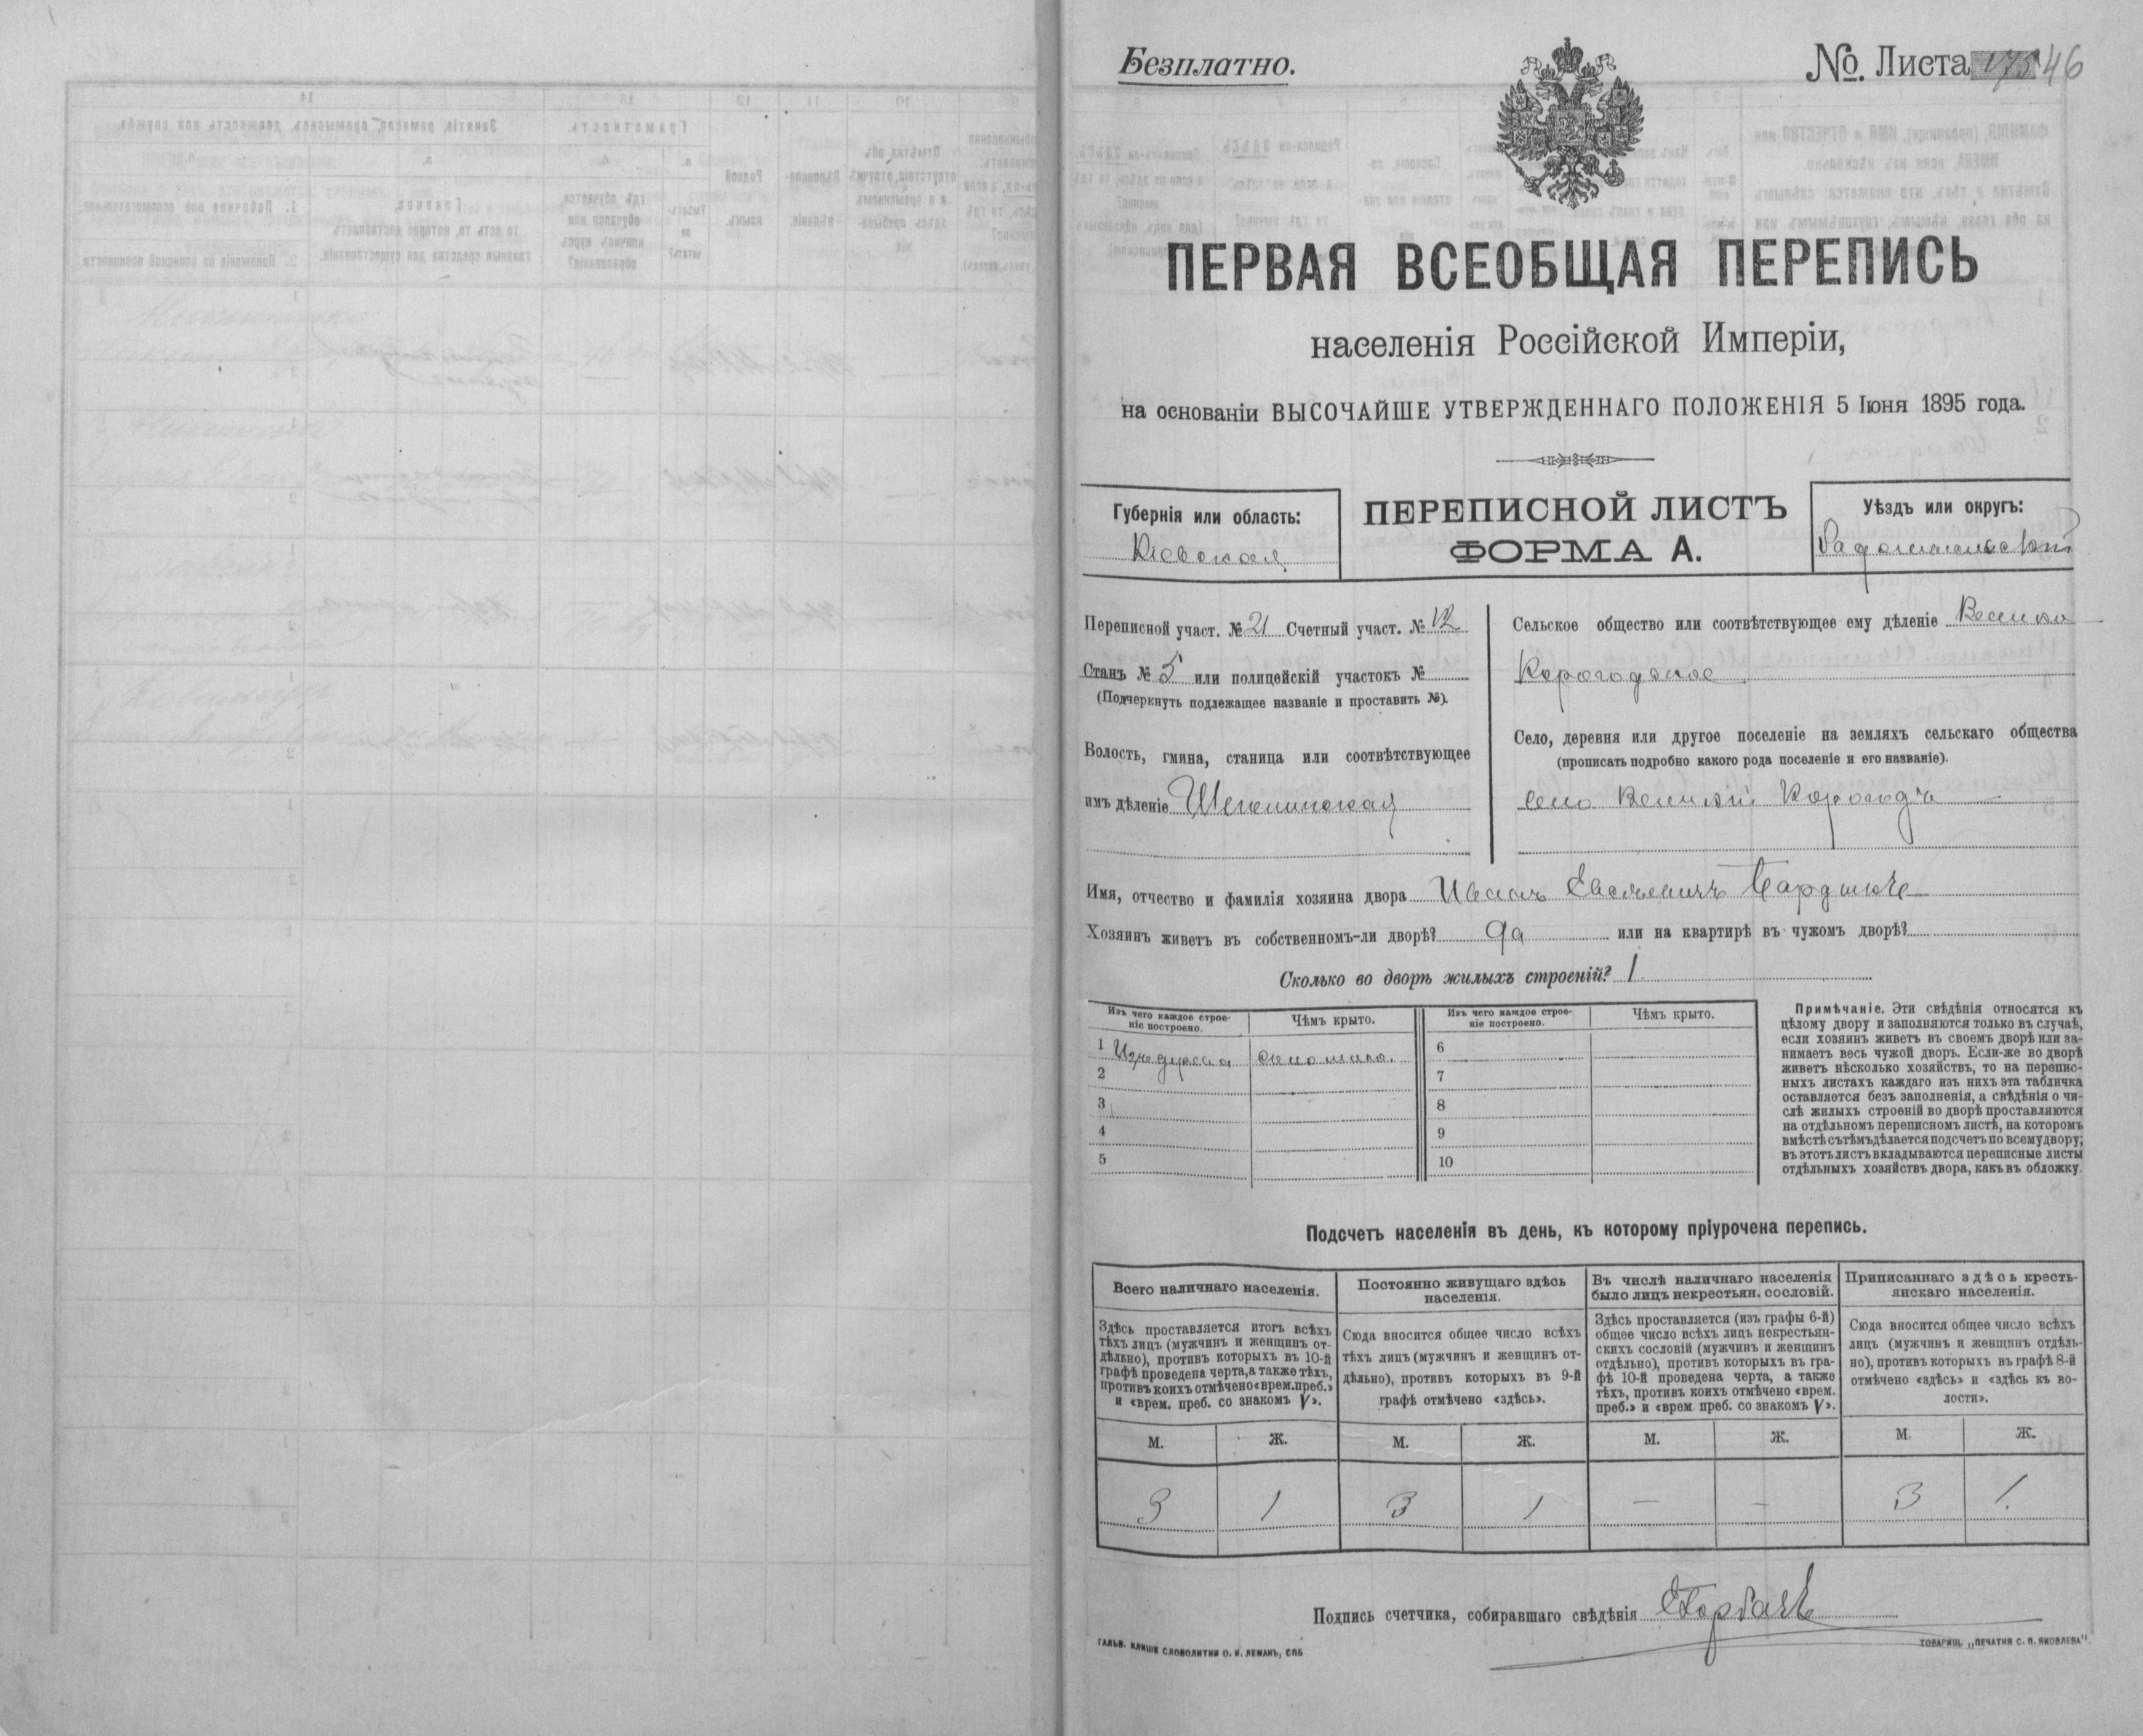 Безплатно.
№. Листа 46
ПЕРВАЯ ВСЕОБЩАЯ ПЕРЕПИСЬ
населенія Россійской Имперіи,
на основаніи ВЫСОЧАЙШЕ УТВЕРЖДЕННАГО ПОЛОЖЕНІЯ 5 Іюня 1895 года.
Губернія или область:
Кіевская
ПЕРЕПИСНОЙ ЛИСТЪ
ФОРМА А.
Уѣздъ или округъ:
Радомысльскій
Переписной участ. № 21 Счетный участ. № 12
Станъ № 5 или полицейскій участокъ №
(Подчеркнуть подлежащее названіе и проставить №).
Волость, гмина, станица или соотвѣтствующее
имъ дѣленіе
Сельское общество или соотвѣтствующее ему дѣленіе Велико
Корогодское
Село, деревня или другое поселеніе на земляхъ сельскаго общества
(прописать подробно какого рода поселеніе и его названіе).
село Великій Корогодъ
Имя, отчество и фамилія хозяина двора Иванъ
Хозяинъ живетъ въ собственномъ-ли дворѣ? да или на квартирѣ въ чужомъ дворѣ?
Сколько во дворѣ жилыхъ строеній? 1
Изъ чего каждое строе-
ніе построено.
Чѣмъ крыто.
Изъ чего каждое строе-
ніе построено.
Чѣмъ крыто.
1 Изъ дерева соломою.
2
3
4
5
6
7
8
9
10
Примѣчаніе. Эти свѣдѣнія относятся къ
цѣлому двору и заполняются только въ случаѣ,
если хозяинъ живетъ въ своемъ дворѣ или за-
нимаетъ весь чужой дворъ. Если-же во дворѣ
живетъ нѣсколько хозяйствъ, то на перепис-
ныхъ листахъ каждаго изъ нихъ эта табличка
оставляется безъ заполненія, а свѣдѣнія о чи-
слѣ жилыхъ строеній во дворѣ проставляются
на отдѣльномъ переписномъ листѣ, на которомъ
вмѣстѣ съ тѣмъ дѣлается подсчетъ по всему двору;
въ этотъ листъ вкладываются переписные листы
отдѣльныхъ хозяйствъ двора, какъ въ обложку.
Подсчетъ населенія въ день, къ которому пріурочена перепись.
Всего наличнаго населенія.
Здѣсь проставляется итогъ всѣхъ
тѣхъ лицъ (мужчинъ и женщинъ от-
дѣльно), противъ которыхъ въ 10-й
графѣ проведена черта, а также тѣхъ,
противъ коихъ отмѣчено «врем. преб.»
и «врем. преб. со знакомъ V».
Постоянно живущаго здѣсь
населенія.
Сюда вносится общее число всѣхъ
тѣхъ лицъ (мужчинъ и женщинъ от-
дѣльно), противъ которыхъ въ 9-й
графѣ отмѣчено «здѣсь».
Въ числѣ наличнаго населенія
было лицъ некрестьян. сословій.
Здѣсь проставляется (изъ графы 6-й)
общее число всѣхъ лицъ некрестьян-
скихъ сословій (мужчинъ и женщинъ
отдѣльно), противъ которыхъ въ гра-
фѣ 10-й проведена черта, а также
тѣхъ, противъ коихъ отмѣчено «врем.
преб.» и «врем преб. со знакомъ V».
Приписаннаго здѣсь кресть-
янскаго населенія.
Сюда вносится общее число всѣхъ
лицъ (мужчинъ и женщинъ отдѣль-
но), противъ которыхъ въ графѣ 8-й
отмѣчено «здѣсь» и «здѣсь къ во-
лости».
М. Ж. М. Ж. М. Ж. М. Ж.
3 1 3 1 — — 3 1.
Подпись счетчика, собиравшаго свѣдѣнія
ГАЛЬВ. КЛИШЕ СЛОВОЛИТНИ О. И. ЛЕМАНЪ, СПБ
ТОВАРИЩ. „ПЕЧАТНЯ С. П. ЯКОВЛЕВА".